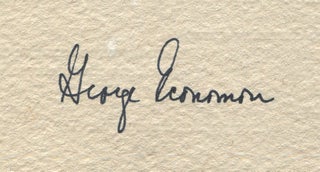 George Economou